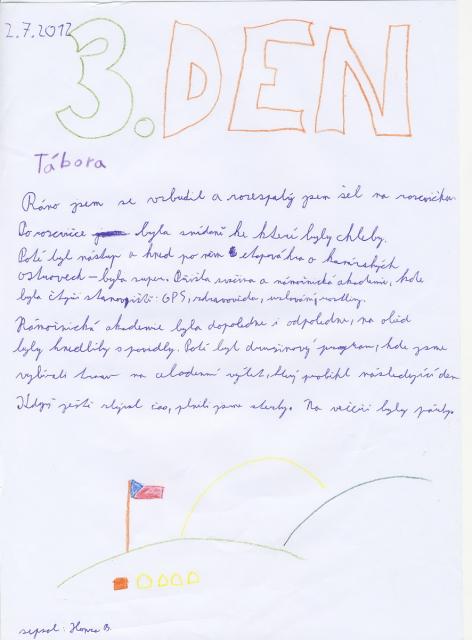 2.7.2012
3. DEN
Tábora
Ráno jsem se vzbudil a rozespalý jsem šel na rozcvičku.
Po rozcvičce byla snídaně ke které byly chleby.
Poté byl nástup a hned po něm etapová hra o kanárských
ostrovech – byla super. Přišla svačina a námořnická akademie, kde
byla čtyři stanoviště: GPS, zdravověda, uzlování, rostliny.
Námořnická akademie byla dopoledne i odpoledne, na oběd
byly knedlíky s povidly. Poté byl družinový program, kde jsme
vybírali trasu na celodenní výlet, který proběhl následující den
Když ještě zbýval čas, plnili jsme stezky. Na večeři byly párky.
sepsal: Honza B.